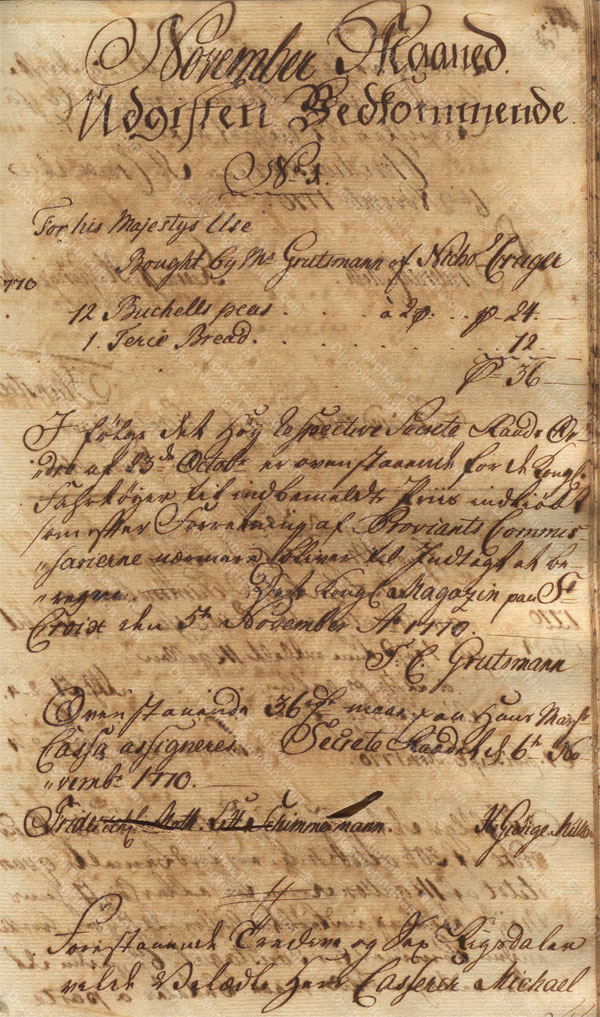 November Maaned.
Udgiften Vedkommende.
No. 1.
For his Majestys Use
Bought by Mr Grutsmann of Nicho. Cruger
1770
12 Buchells peas . . . . à 2 p. . . p 24 —
1 Terce Bread . . . . . . . 12
36 —
I følge det Høy respective Secrete Raads Or-
„dre af 23de Octobr er ovenstaaende for de Kongl.
Fahrtøyer til indbemeldte Priis indkiøbt
som efter Forretning af Proviants Commis
„sarierne nærmere bliver til Indtægt at be-
„regne. Det Kongl. Magazin paa St
Croix den 5te November Ao 1770.
F. C. Grutsmann
Ovenstaaende 36 maae paa Hans Mayts
Cassa assigneres. Secrete Raadet d. 6te No-
„vembr 1770.
Schimmelmann.
Forestaaende Tredive og Sex Rigsdaler
vilde Velædle Herr Casserer Michael